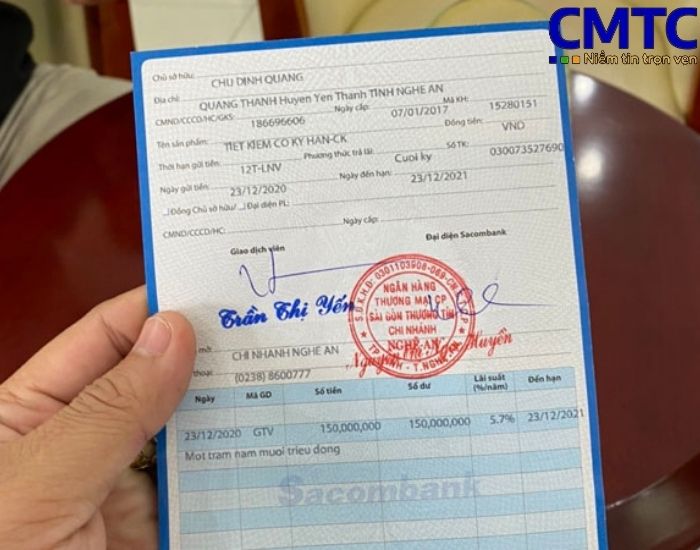 CMTC
Niềm tin trọn vẹn
Chủ sở hữu: CHU DINH QUANG
Địa chỉ: QUANG THANH Huyen Yen Thanh TINH NGHE AN
CMND/CCCD/HC/GKS: 186696606 Ngày cấp: 07/01/2017 Mã KH: 15280151
Tên sản phẩm: TIET KIEM CO KY HAN-CK Đồng tiền: VND
Thời hạn gửi tiền: 12T-LNV Phương thức trả lãi: Cuoi ky Số TK: 030073527690
Ngày gửi tiền: 23/12/2020 Ngày đến hạn: 23/12/2021
Đồng Chủ sở hữu/ Đại diện PL:
CMND/CCCD/HC: Ngày cấp:
Giao dịch viên Đại diện Sacombank
Trần Thị Yến
NGÂN HÀNG
THƯƠNG MẠI CP
SÀI GÒN THƯƠNG TÍN
CHI NHÁNH
NGHỆ AN
Nguyễn Huyền
mở: CHI NHANH NGHE AN
thoại: (0238) 8600777
Ngày Mã GD Số tiền Số dư Lãi suất (%/năm) Đến hạn
23/12/2020 GTV 150,000,000 150,000,000 5.7% 23/12/2021
Mot tram nam muoi trieu dong
Sacombank